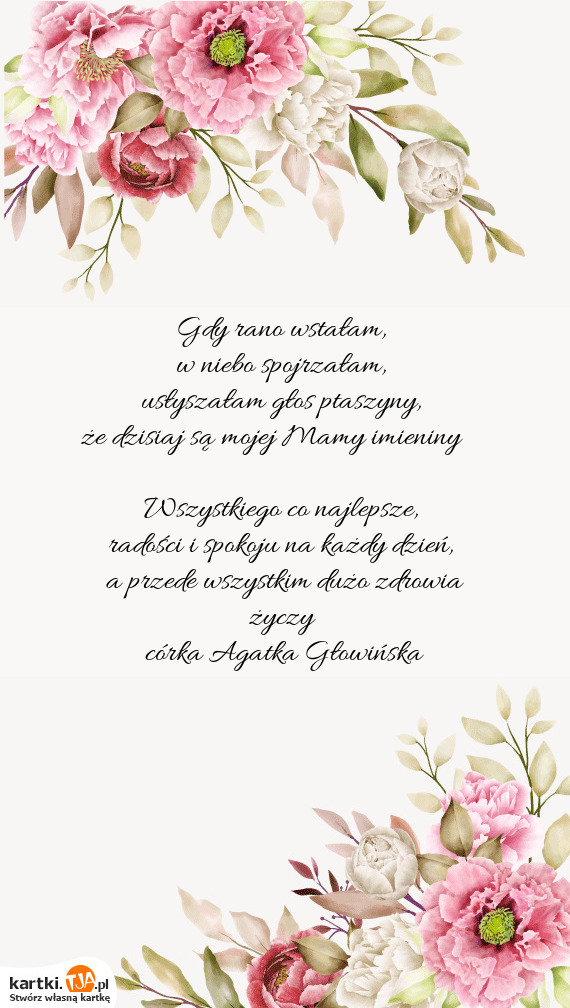 Gdy rano wstałam,
w niebo spojrzałam,
usłyszałam głos ptaszyny,
że dzisiaj są mojej Mamy imieniny
Wszystkiego co najlepsze,
radości i spokoju na każdy dzień,
a przede wszystkim dużo zdrowia
życzy
córka Agatka Głowińska
kartki.TJA.pl
Stwórz własną kartkę